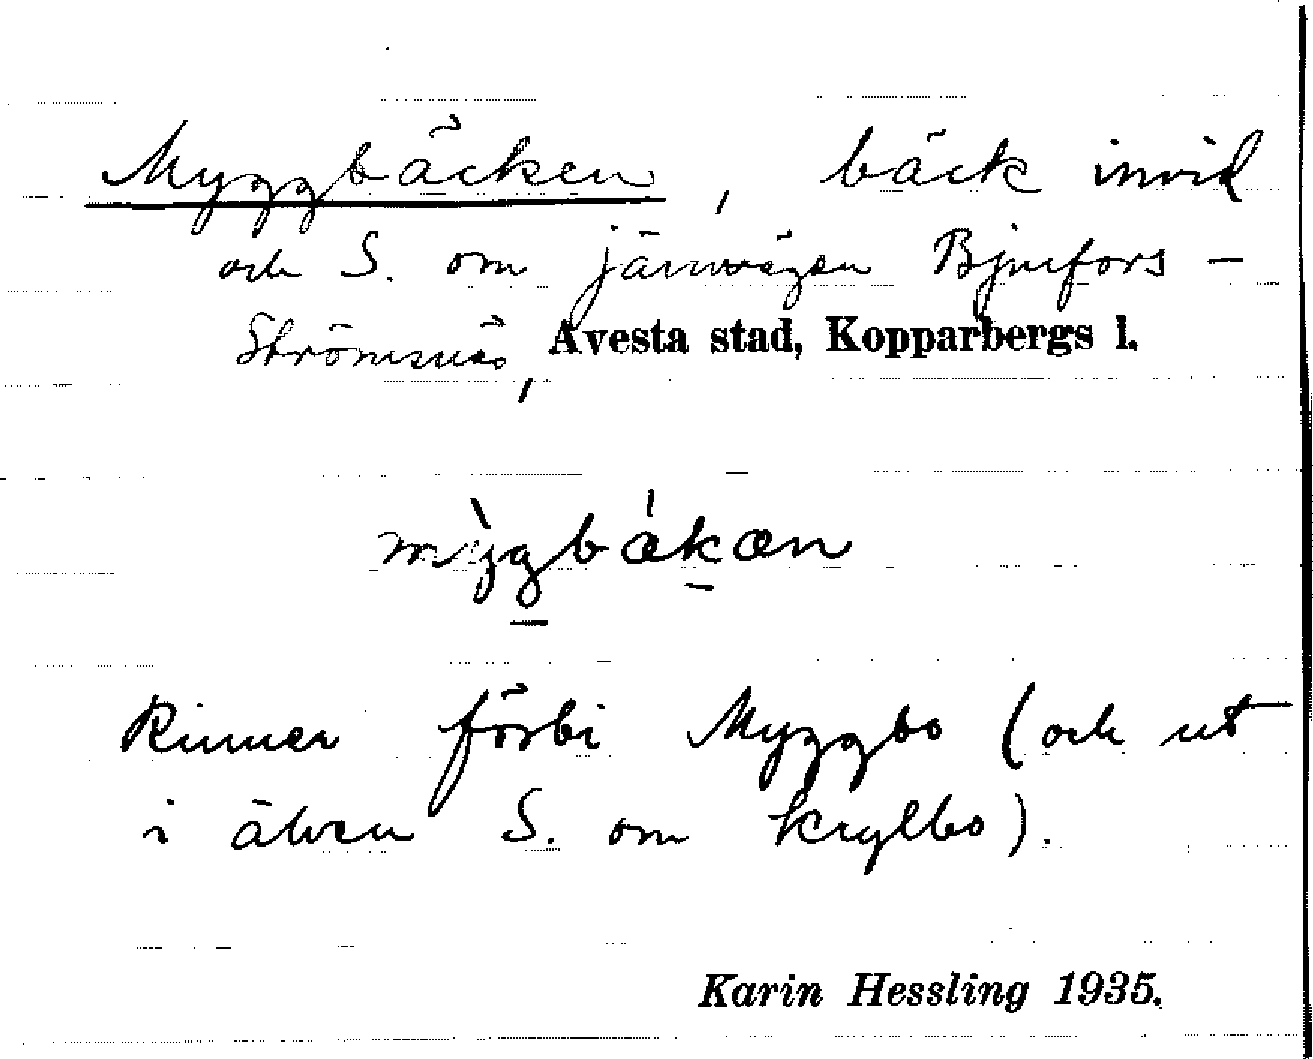 Myggbäcken, bäck invid
och S. om järnvägen Bjurfors –
Strömsnäs, Avesta stad, Kopparbergs l.
mỳgbǽkæn
Rinner förbi Myggbo (och ut
i älven S. om Krylbo).
Karin Hessling 1935.